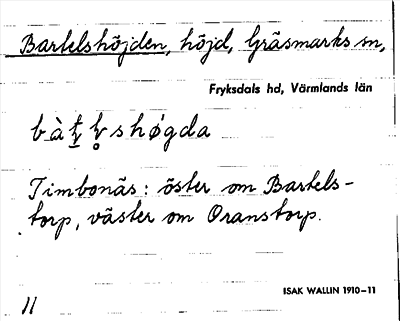 Bartelshöjden, höjd, Gräsmarks sn,
Fryksdals hd, Värmlands län
Timbonäs: öster om Bartels-
torp, väster om Oranstorp.
ISAK WALLIN 1910-11
11